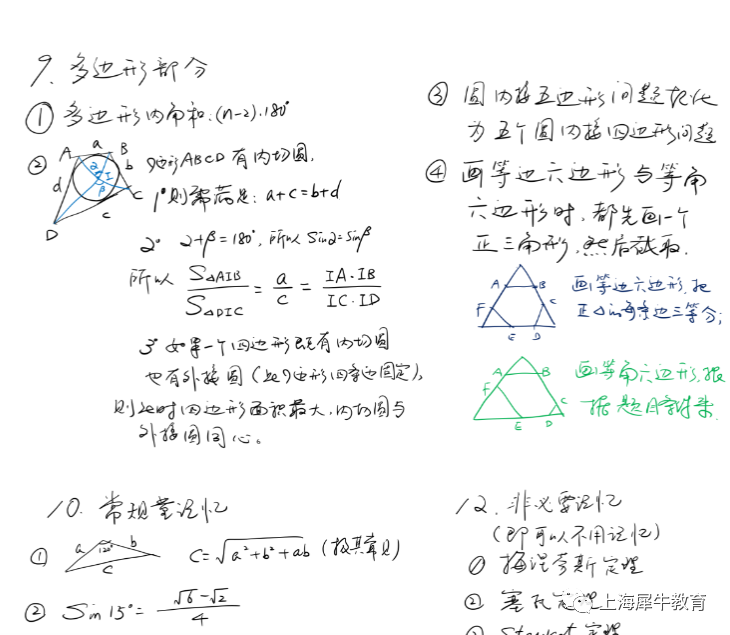 9. 多边形部分
① 多边形内角和:(n-2)·180°
②
A a B
α I b
d β C
c
D
四边形ABCD有内切圆,
1° 则需满足: a+c=b+d
2° α+β=180°, 所以 sinα=sinβ
所以 S△AIB/S△DIC = a/c = IA·IB/IC·ID
3° 如果一个四边形既有内切圆
也有外接圆(此四边形四条边固定),
则此时四边形面积最大,内切圆与
外接圆同心。
10. 常规量记忆
① a 120° b
c
C=√a²+b²+ab (极其常见)
② Sin15°= √6-√2/4
③ 圆内接五边形问题转化
为五个圆内接四边形问题
④ 画等边六边形与等角
六边形时,都先画一个
正三角形,然后截取.
A B
F C
E D
画等边六边形,把
正△的每条边三等分;
A B
F C
E D
画等角六边形,根
据题目
12. 非必要记忆
(即可以不用记忆)
① 梅涅劳斯定理
② 塞瓦定理
③ Stewart 定理
上海犀牛教育